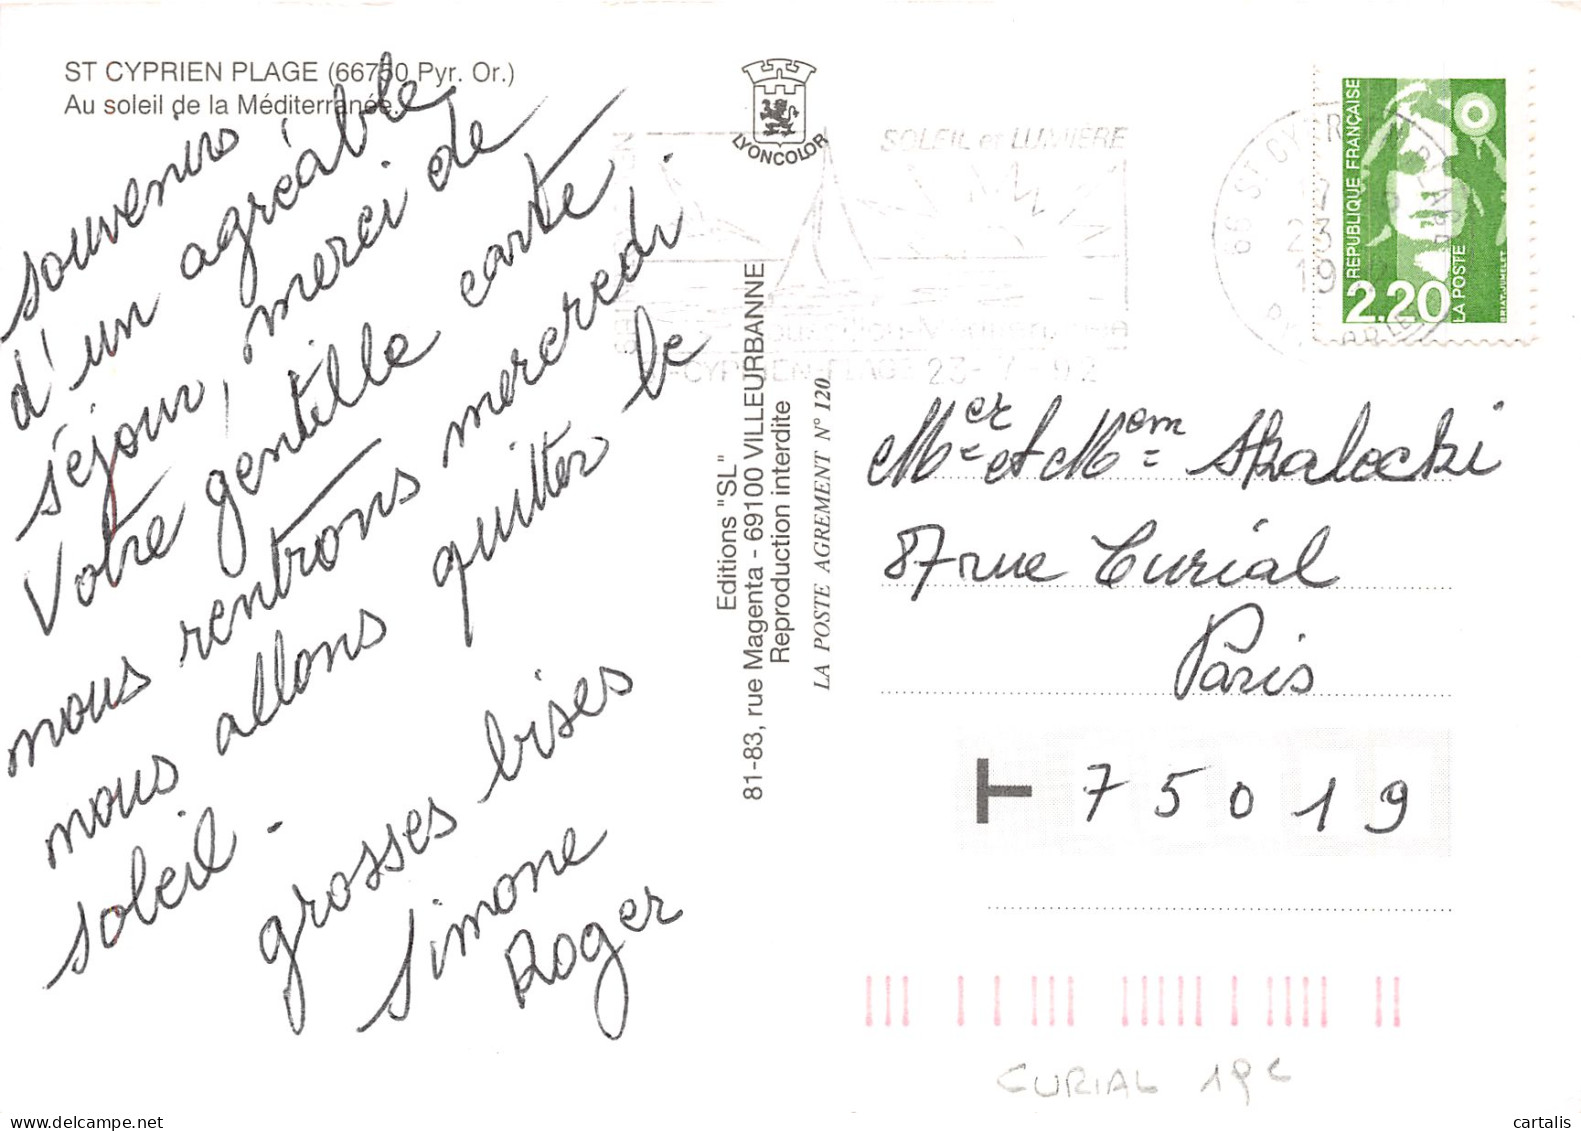 ST CYPRIEN PLAGE (66750 Pyr. Or.)
Au soleil de la Méditerranée.
souvenirs
d'un agréable
séjour, merci de
Votre gentille carte
nous rentrons mercredi
nous allons quitter le
soleil -
grosses bises
Simone
Roger
LYONCOLOR
Editions "SL"
81-83, rue Magenta - 69100 VILLEURBANNE
Reproduction interdite
LA POSTE AGREMENT N° 120
SOLEIL et LUMIÈRE
23-7-92
REPUBLIQUE FRANÇAISE
2.20
LA POSTE
BRIAT-JUMELET
Mer et Mem Skalecki
87 rue Curial
Paris
T 75019
CURIAL 19e
www.cartalis.com